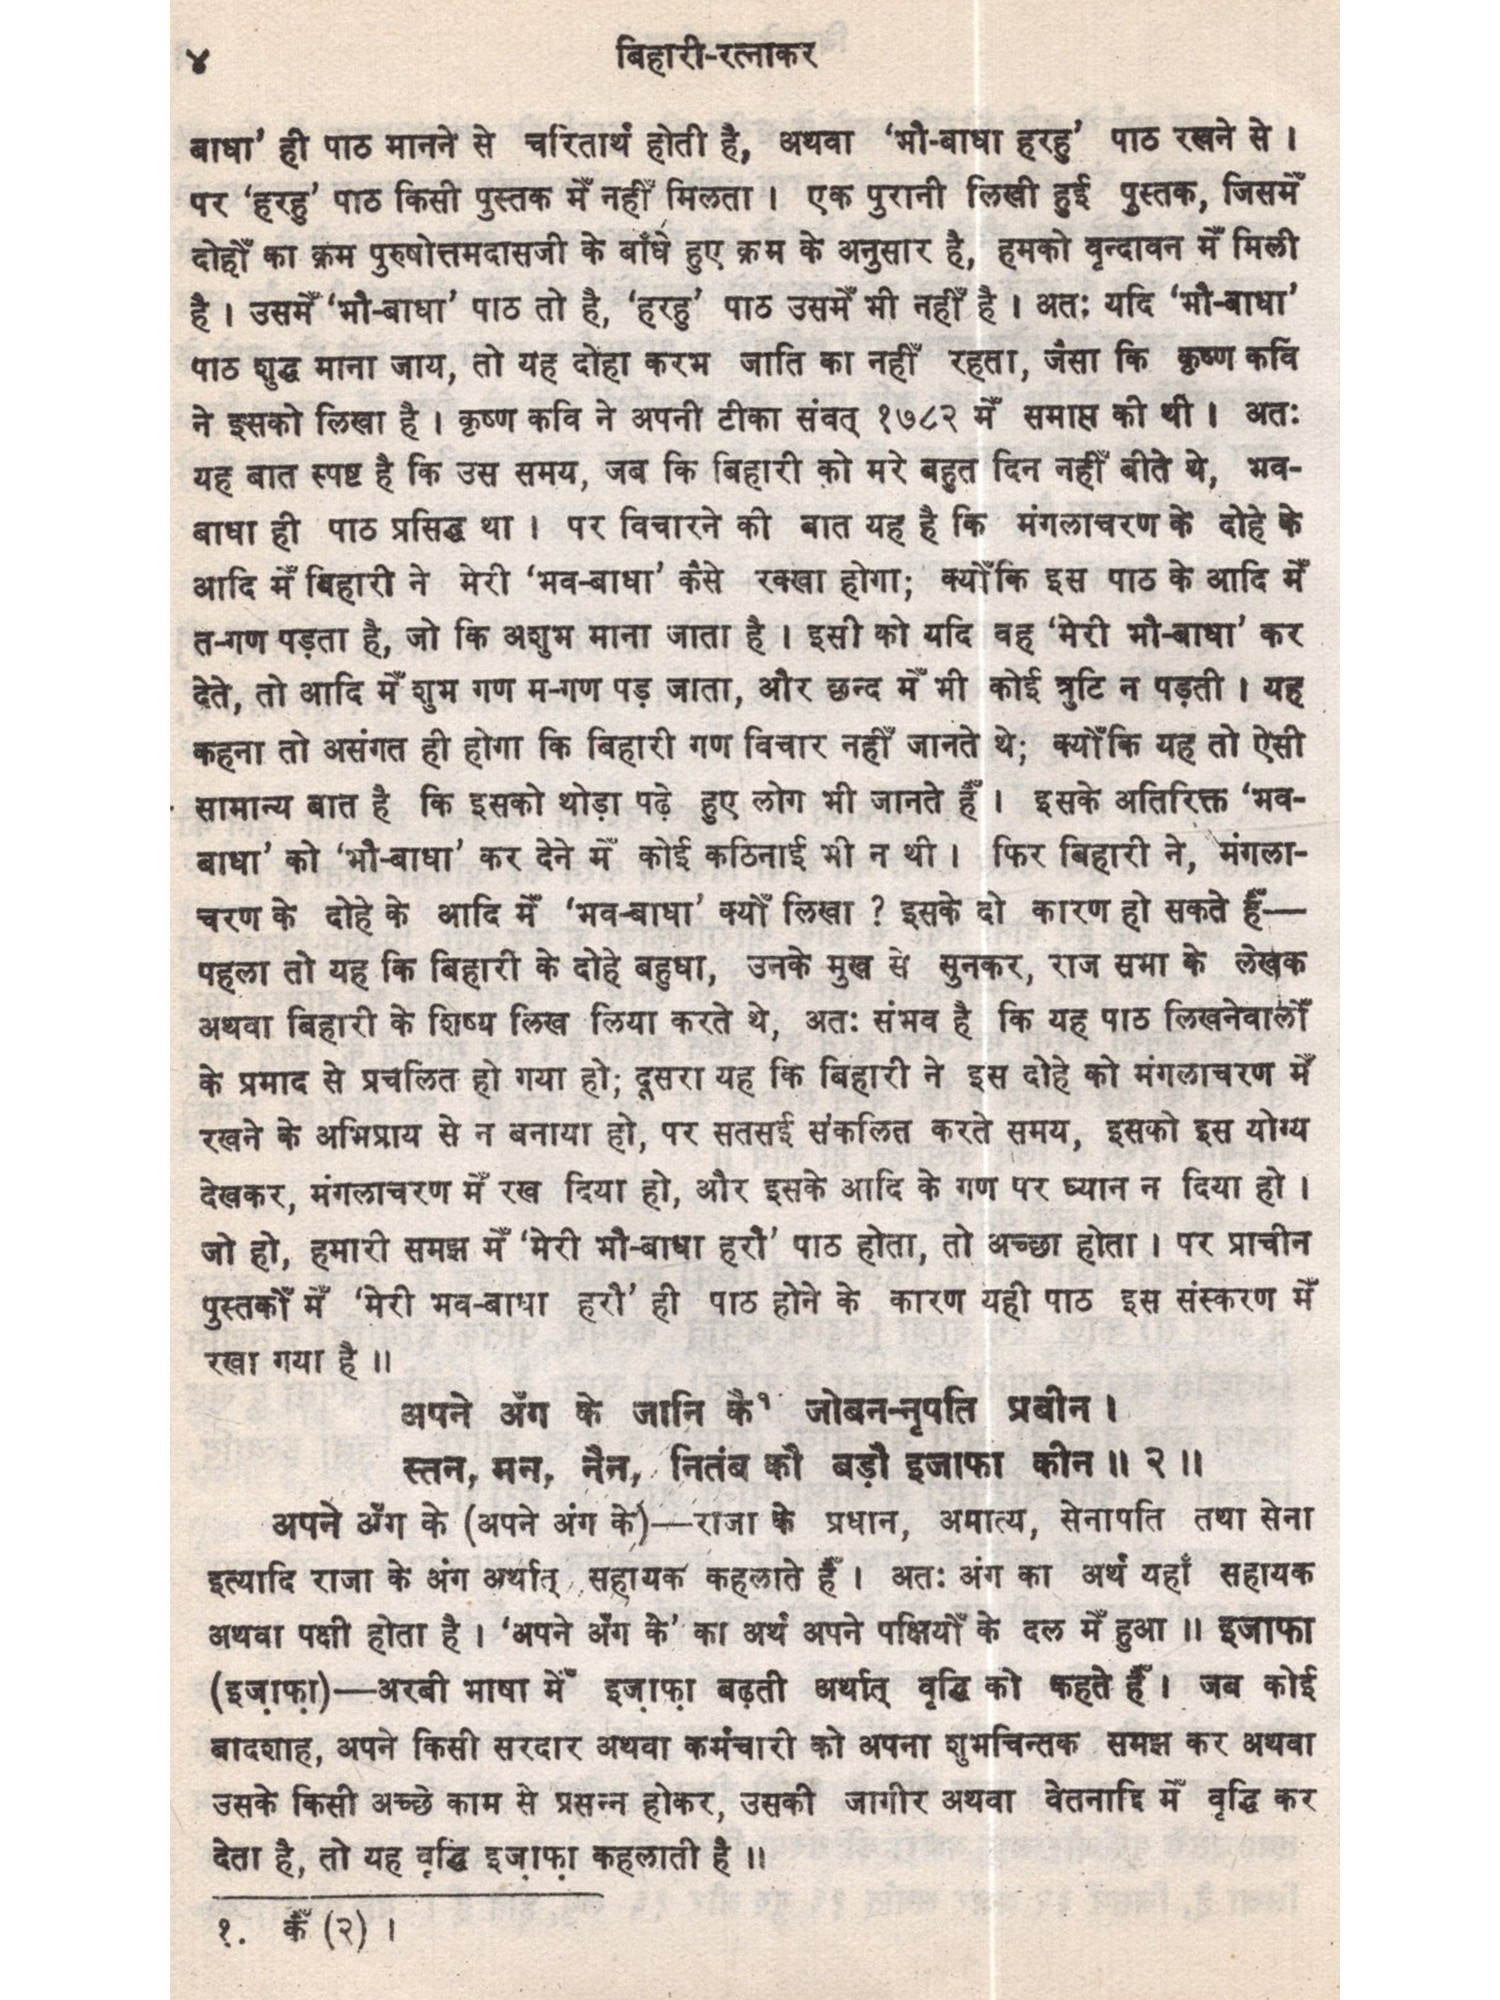 ४
बिहारी-रत्नाकर
बाधा’ ही पाठ मानने से चरितार्थ होती है, अथवा ‘भौ-बाधा हरहु’ पाठ रखने से ।
पर ‘हरहु’ पाठ किसी पुस्तक मेँ नहीँ मिलता । एक पुरानी लिखी हुई पुस्तक, जिसमेँ
दोहोँ का क्रम पुरुषोत्तमदासजी के बाँधे हुए क्रम के अनुसार है, हमको वृन्दावन मेँ मिली
है । उसमेँ ‘भौ-बाधा’ पाठ तो है, ‘हरहु’ पाठ उसमेँ भी नहीँ है । अतः यदि ‘भौ-बाधा’
पाठ शुद्ध माना जाय, तो यह दोहा करभ जाति का नहीँ रहता, जैसा कि कृष्ण कवि
ने इसको लिखा है । कृष्ण कवि ने अपनी टीका संवत् १७८२ मेँ समाप्त की थी । अतः
यह बात स्पष्ट है कि उस समय, जब कि बिहारी को मरे बहुत दिन नहीँ बीते थे, भव-
बाधा ही पाठ प्रसिद्ध था । पर विचारने की बात यह है कि मंगलाचरण के दोहे के
आदि मेँ बिहारी ने मेरी ‘भव-बाधा’ कैसे रक्खा होगा; क्योँकि इस पाठ के आदि मेँ
त-गण पड़ता है, जो कि अशुभ माना जाता है । इसी को यदि वह ‘मेरी भौ-बाधा’ कर
देते, तो आदि मेँ शुभ गण म-गण पड़ जाता, और छन्द मेँ भी कोई त्रुटि न पड़ती । यह
कहना तो असंगत ही होगा कि बिहारी गण विचार नहीँ जानते थे; क्योँकि यह तो ऐसी
सामान्य बात है कि इसको थोड़ा पढ़े हुए लोग भी जानते हैँ । इसके अतिरिक्त ‘भव-
बाधा’ को ‘भौ-बाधा’ कर देने मेँ कोई कठिनाई भी न थी । फिर बिहारी ने, मंगला-
चरण के दोहे के आदि मेँ ‘भव-बाधा’ क्योँ लिखा ? इसके दो कारण हो सकते हैँ—
पहला तो यह कि बिहारी के दोहे बहुधा, उनके मुख से सुनकर, राज सभा के लेखक
अथवा बिहारी के शिष्य लिख लिया करते थे, अतः संभव है कि यह पाठ लिखनेवालोँ
के प्रमाद से प्रचलित हो गया हो; दूसरा यह कि बिहारी ने इस दोहे को मंगलाचरण मेँ
रखने के अभिप्राय से न बनाया हो, पर सतसई संकलित करते समय, इसको इस योग्य
देखकर, मंगलाचरण मेँ रख दिया हो, और इसके आदि के गण पर ध्यान न दिया हो ।
जो हो, हमारी समझ मेँ ‘मेरी भौ-बाधा हरौ’ पाठ होता, तो अच्छा होता । पर प्राचीन
पुस्तकोँ मेँ ‘मेरी भव-बाधा हरौ’ ही पाठ होने के कारण यही पाठ इस संस्करण मेँ
रखा गया है ॥
अपने अँग के जानि कै¹ जोबन-नृपति प्रबीन ।
स्तन, मन, नैन, नितंब कौ बड़ौ इजाफा कीन ॥ २ ॥
अपने अँग के (अपने अंग के)—राजा के प्रधान, अमात्य, सेनापति तथा सेना
इत्यादि राजा के अंग अर्थात् सहायक कहलाते हैँ । अतः अंग का अर्थ यहाँ सहायक
अथवा पक्षी होता है । ‘अपने अँग के’ का अर्थ अपने पक्षियोँ के दल मेँ हुआ ॥ इजाफा
(इज़ाफ़ा)—अरबी भाषा मेँ इज़ाफ़ा बढ़ती अर्थात् वृद्धि को कहते हैँ । जब कोई
बादशाह, अपने किसी सरदार अथवा कर्मचारी को अपना शुभचिन्तक समझ कर अथवा
उसके किसी अच्छे काम से प्रसन्न होकर, उसकी जागीर अथवा वेतनादि मेँ वृद्धि कर
देता है, तो यह वृद्धि इज़ाफ़ा कहलाती है ॥
१. कैँ (२) ।